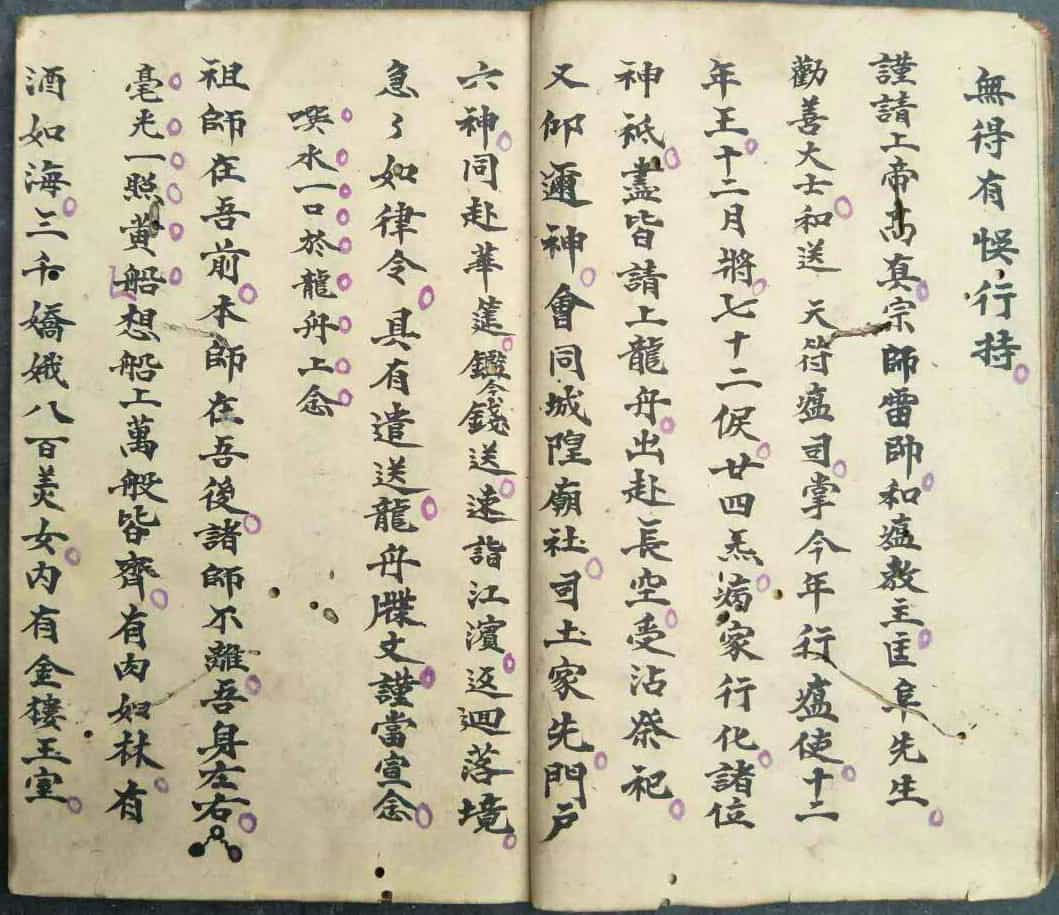 無得有悞行持
謹請上帝高真宗師雷師和瘟教主匡阜先生
勸善大士和送天符瘟司掌今年行瘟使十二
年王十二月將七十二候廿四炁病家行化諸位
神祇盡皆請上龍舟出赴長空受沾祭祀
又仰邇神會同城隍廟社司土家先門戶
六神同赴華筵鑑念錢送速詣江濱返迴落境
急々如律令具有遣送龍舟牒文謹當宣念
噀水一口於龍舟上念
祖師在吾前本師在吾後諸師不離吾身左右
毫光一照黃船想船上萬般皆齊有肉如林有
酒如海三千嬌娥八百美女內有金樓玉室